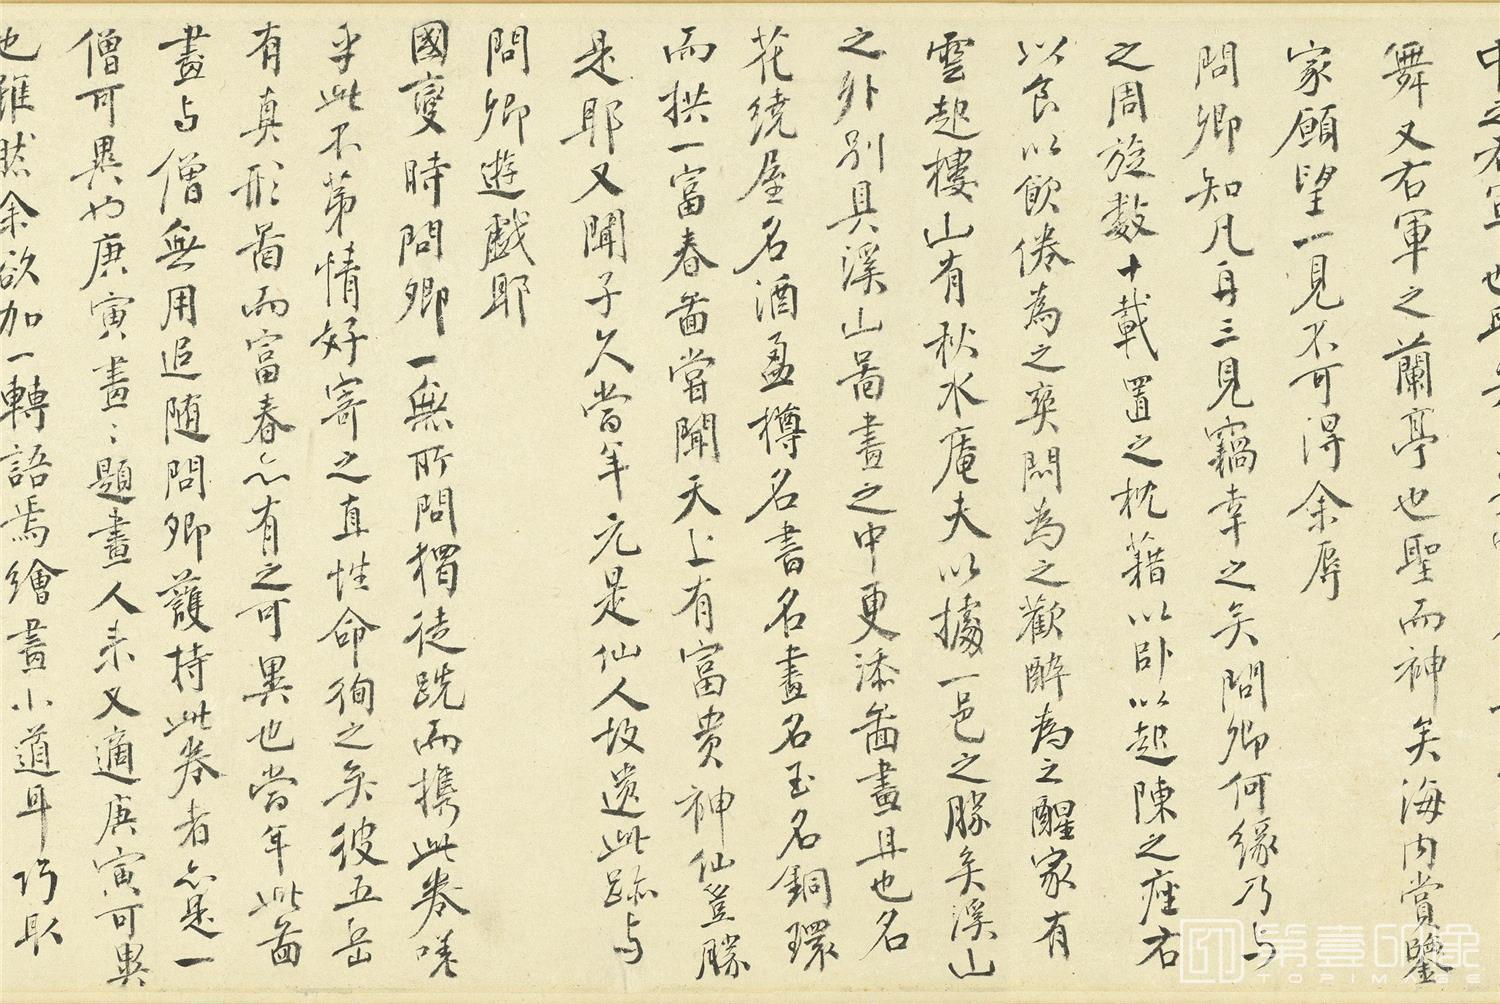 中之右軍也聖矣
舞又右軍之蘭亭也聖而神矣海內賞鑒
家願望一見不可得余辱
問卿知凡再三見竊幸之矣問卿何緣乃与
之周旋數十載置之枕藉以卧以起陳之座右
以食以飲倦為之爽悶為之歡醉為之醒家有
雲起樓山有秋水庵夫以據一邑之勝矣溪山
之外別具溪山圖畫之中更添圖畫且也名
花繞屋名酒盈樽名書名畫名玉名銅環
而拱一富春圖嘗聞天上有富貴神仙豈勝
是耶又聞子久當年元是仙人故遺此跡与
問卿遊戲耶
國變時問卿一無所問獨徒跣而攜此卷嗟
乎此不第情好寄之直性命徇之矣彼五岳
有真形圖而富春亦有之可異也當年此圖
畫与僧無用追隨問卿護持此卷者亦是一
僧可異也庚寅畫畫題畫人来又適庚寅可異
也雖然余欲加一轉語焉繪畫小道耳巧取
第壹印象
TOPIMAGE